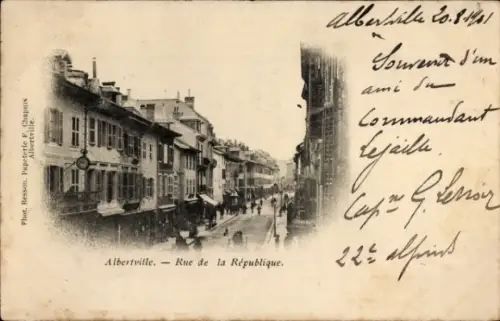 Albertville 20.8.1901
Souvenir d'un
ami du
Commandant
Lejaille.
Capne G. Leroir
22e alpins
Phot. Besson. Papeterie F. Chapuis
Albertville.
Albertville. — Rue de la République.